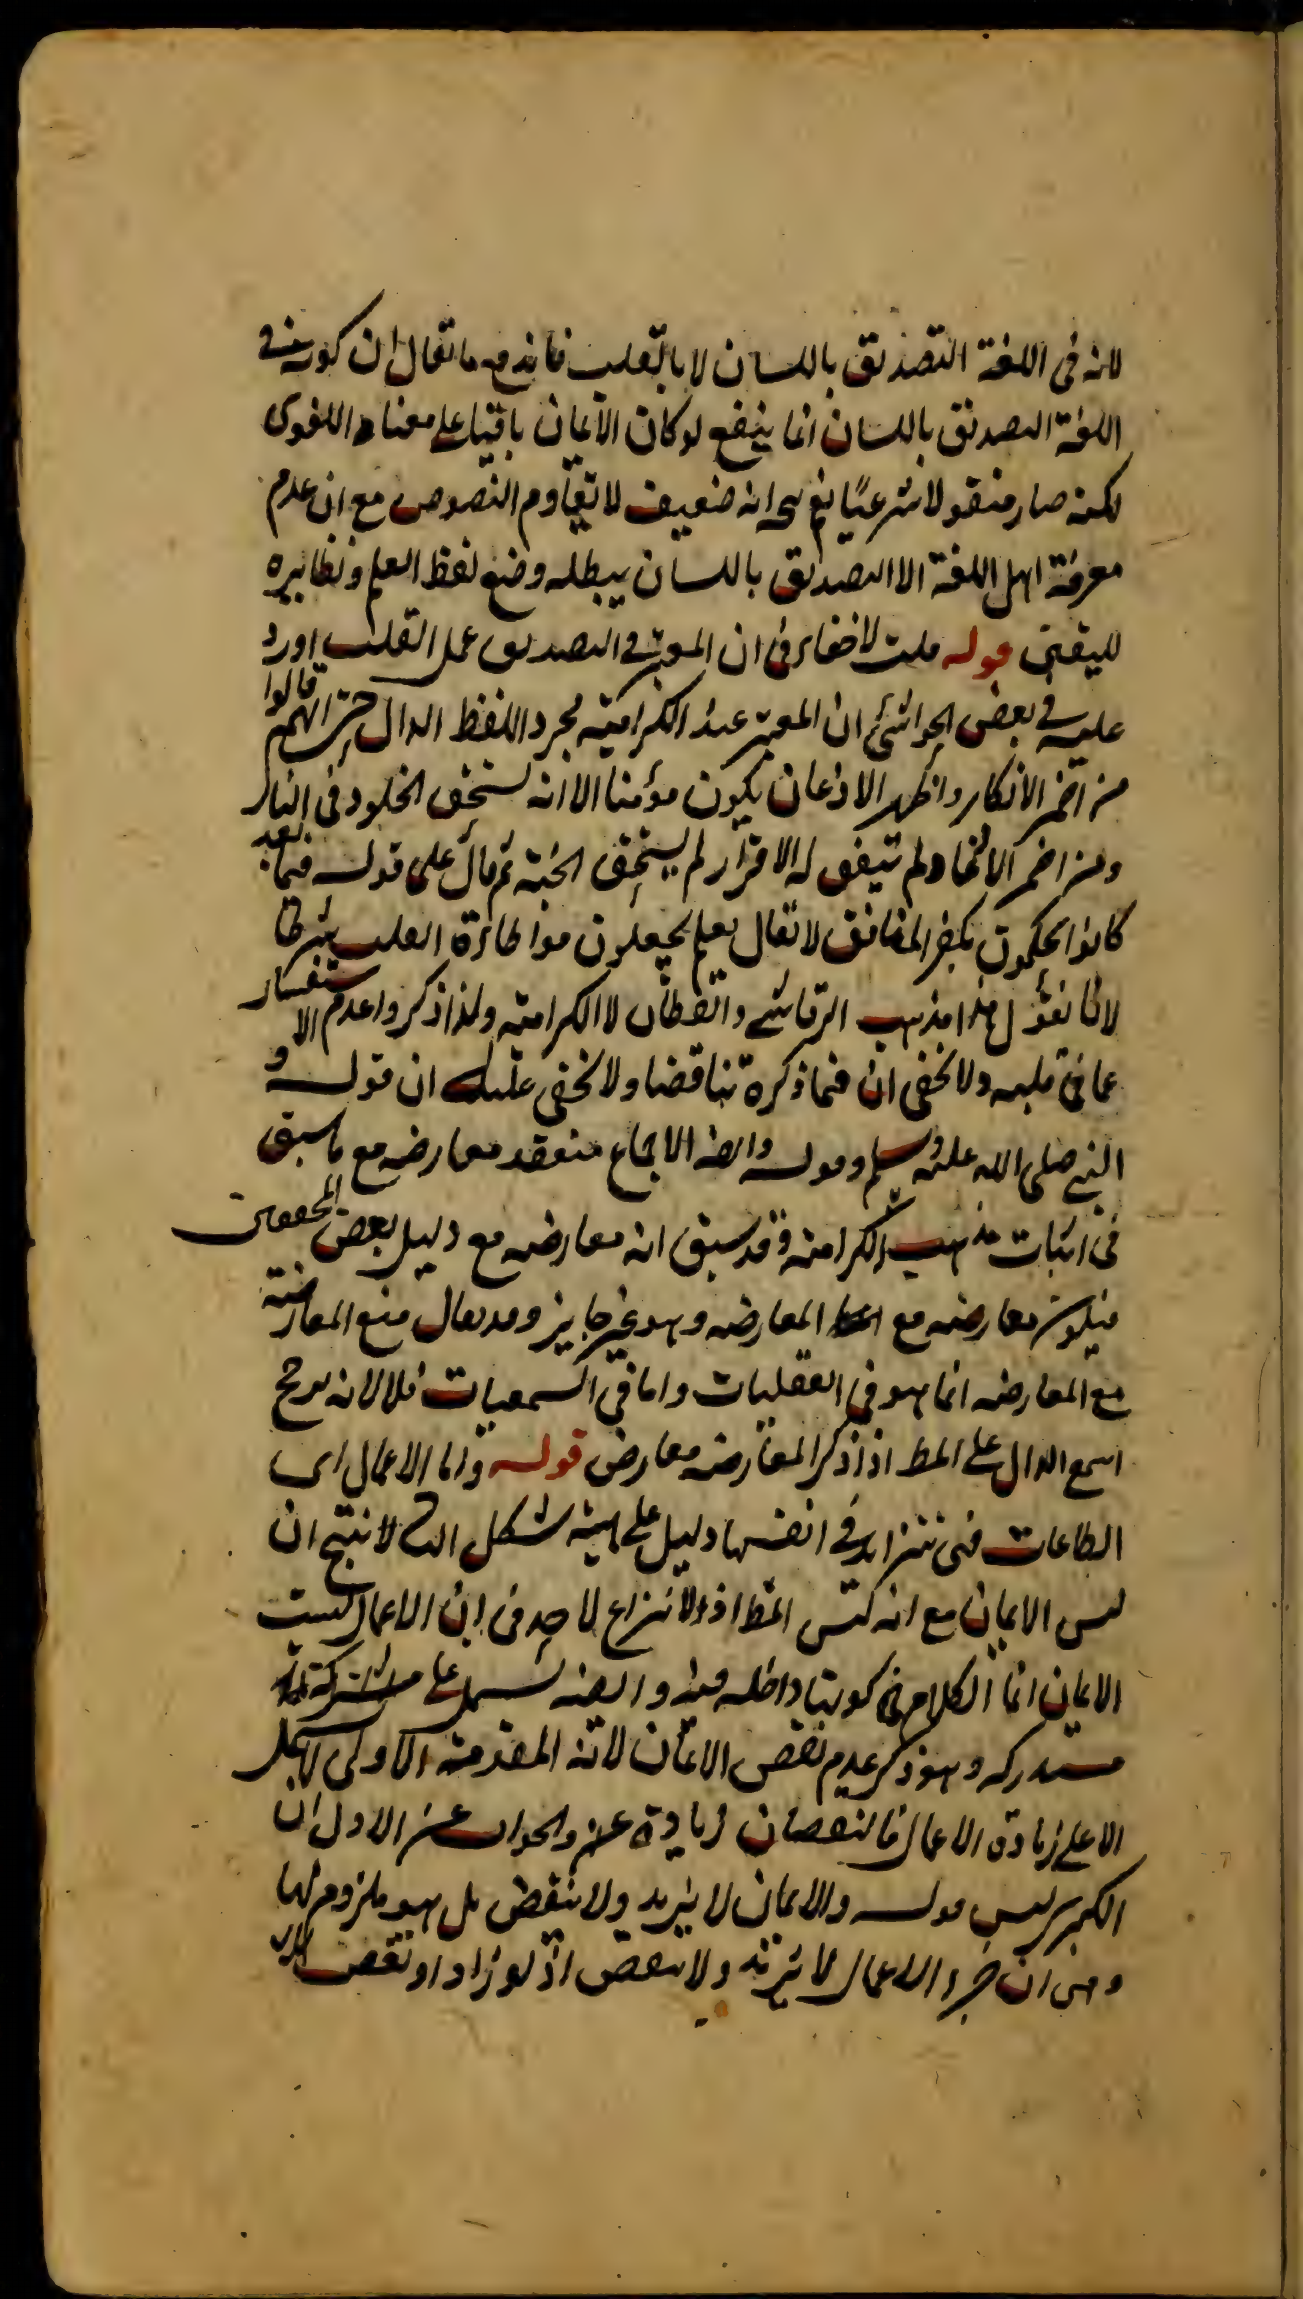 لانه فى اللغة التصديق باللسان لا بالقلب فاندفع ما يقال ان كونه فى
اللغة التصديق باللسان انما ينفع لو كان الايمان باقيا على معناه اللغوى
لكنه صار منقولا شرعيا نعم يتجه انه ضعيف لا يقاوم النصوص مع ان عدم
معرفة اهل اللغة الا التصديق باللسان يبطله وضع لفظ العلم ونظايره
لليقين قوله قلت لا خفاء فى ان المعتبر فى التصديق عمل القلب اورد
عليه فى بعض الحواشى ان المعتبر عند الكرامية مجرد اللفظ الدال حتى انهم قالوا
من اضمر الانكار واظهر الاذعان يكون مؤمنا الا انه يستحق الخلود فى النار
ومن اضمر الايمان ولم يتفق له الاقرار لم يستحق الجنة ثم قال على قوله فيما بعد
كانوا يحكمون بكفر المنافق لا يقال لعلهم يجعلون مواطاءة القلب شرطا
لانا نقول هذا مذهب الرقاشى والقطان لا الكرامية ولذا ذكروا عدم الاستفسار
عما فى قلبه ولا يخفى ان فيما ذكره تناقضا ولا يخفى عليك ان قوله و
النبى صلى الله عليه وسلم وقوله وايضا الاجماع منعقد معارضه مع ما سبق
فى اثبات مذهب الكرامية وقد سبق انه معارضه مع دليل بعض المحققين
فيكون معارضه مع المعارضه وهو غير جايز وقد يقال منع المعارضة
مع المعارضه انما هو فى العقليات واما فى السمعيات فلا لانه يرجح
السمع الدال على المط اذا ذكر المعارضه معارض قوله واما الاعمال اى
الطاعات فهى تتزايد فى انفسها دليل على هيئة شكل الثانى لا ينتج ان
ليس الايمان مع انه ليس المط اذ لا نزاع لاحد فى ان الاعمال ليست
الايمان انما الكلام فى كونها داخله فيه وايضا يشتمل على
مستدركه وهو ذكر عدم نقص الايمان لانه المقدمة الاولى لا يشتمل
الا على زيادة الاعمال فالنقصان زيادة عنه والجواب عن الاول ان
الكبرى ليس قوله والايمان لا يزيد ولا ينقص بل هو ملزوم لها
وهى ان جزء الاعمال لا يزيد ولا ينقص اذ لو زاد او نقص